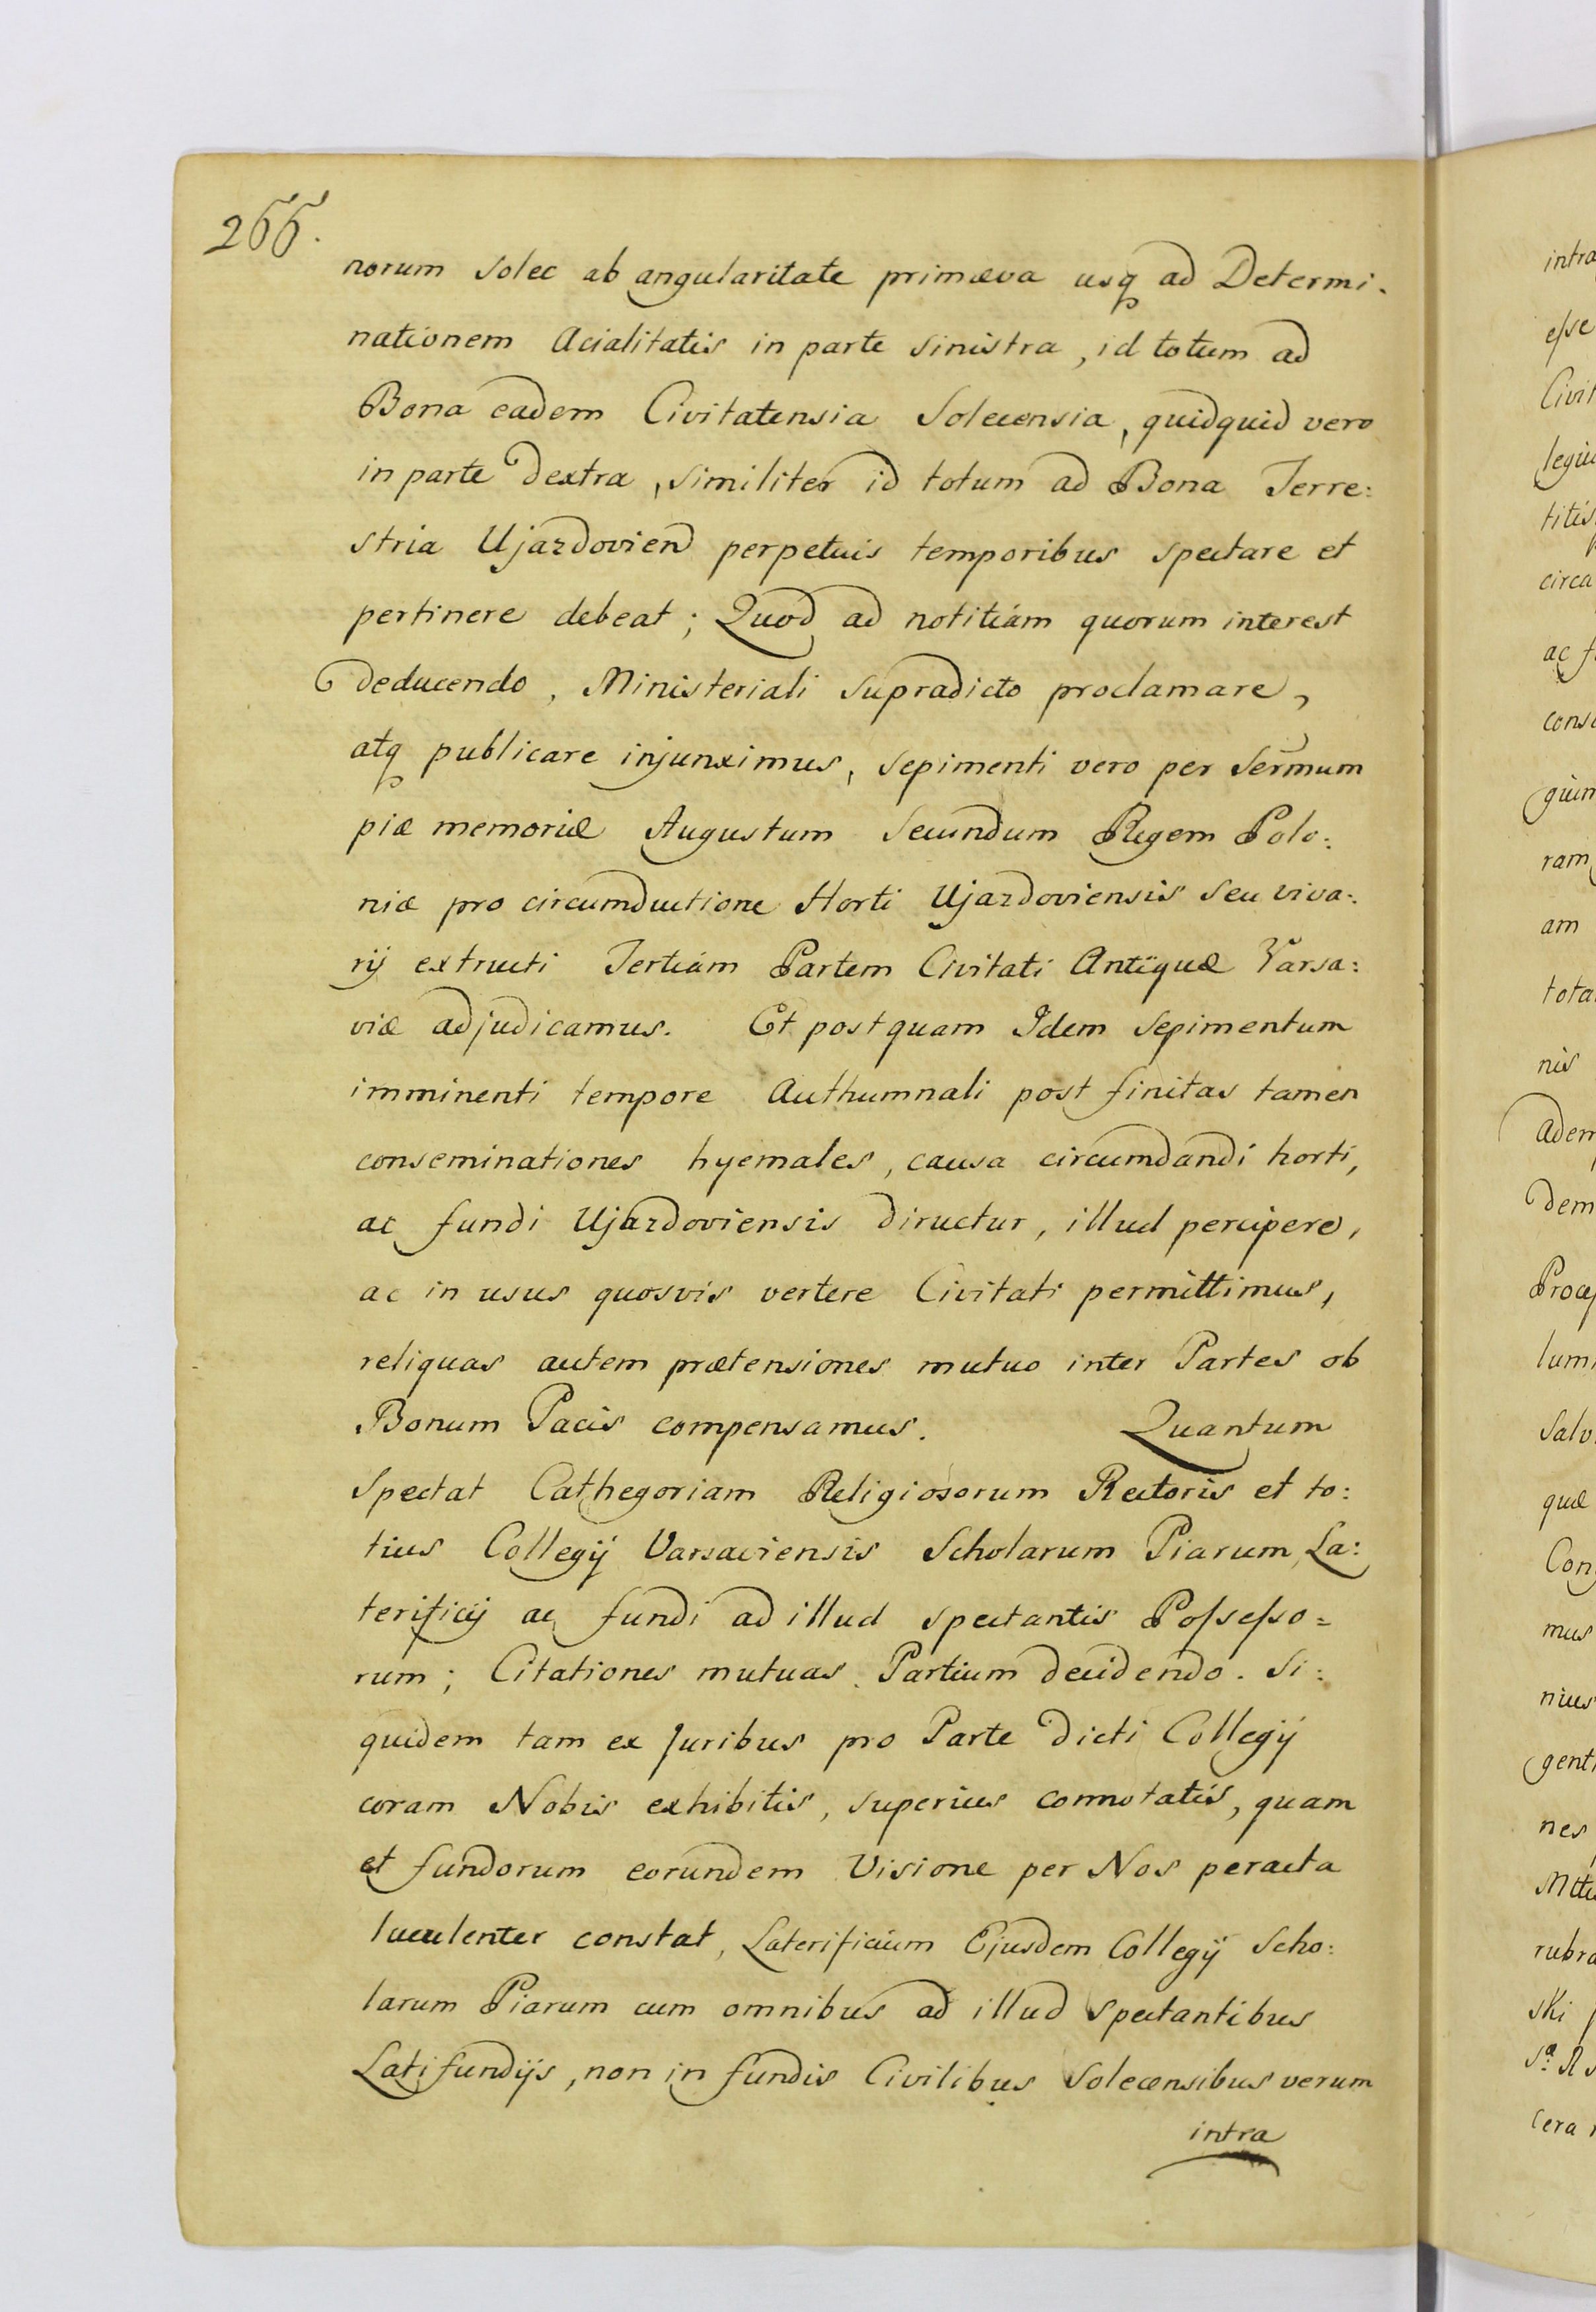 266.
norum Solec ab angularitate primæva usq ad Determi:
nationem Acialitatis in parte sinistra, id totum ad
Bona eadem Civitatensia Solecensia, quidquid vero
in parte dextra, similiter id totum ad Bona Terre:
stria Ujazdovien perpetuis temporibus spectare et
pertinere debeat; Quod ad notitiam quorum interest
deducendo, Ministeriali supradicto proclamare,
atq publicare injunximus, sepimenti vero per Sermum
piæ memoriæ Augustum Secundum Regem Polo:
niæ pro circumductione Horti Ujazdoviensis seu viva:
rij extructi Tertiam Partem Civitati Antiquæ Varsa:
viæ adjudicamus. Et postquam Idem Sepimentum
imminenti tempore Authumnali post finitas tamen
conseminationes hyemales, causa circumdandi horti,
ac fundi Ujazdoviensis diructur, illud percipere,
ac in usus quosvis vertere Civitati permittimus,
reliquas autem prætensiones mutuo inter Partes ob
Bonum Pacis compensamus. Quantum
Spectat Cathegoriam Religiosorum Rectoris et to:
tius Collegij Varsaviensis Scholarum Piarum, La:
terificij ac fundi ad illud spectantis Possesso=
rum; Citationes mutuas Partium decidendo. Si:
quidem tam ex Juribus pro Parte dicti Collegij
coram Nobis exhibitis, superius connotatis, quam
et fundorum eorundem Visione per Nos peracta
luculenter constat, Laterificium Ejusdem Collegij Scho:
larum Piarum cum omnibus ad illud Spectantibus
Latifundijs, non in fundis Civilibus Solecensibus verum
intra
intra
esse
Civit
legiu
titis
circa
ac f
cons
guin
ram
am
tota
nis
adem
dem
Proce
lum
Salv
quæ
Con
mus
nius
gent
nes
rubra
ski
cera